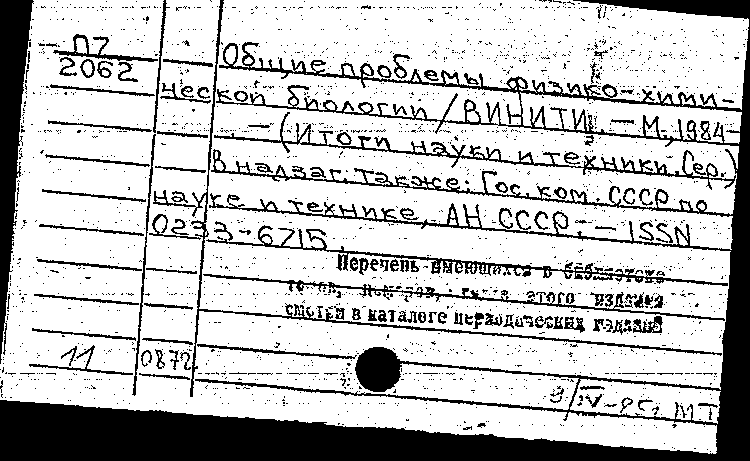 П7
2062
Общие проблемы физико-хими-
ческой биологии / ВИНИТИ. — М., 1984-
. — (Итоги науки и техники. Сер.)
В надзаг. также: Гос. ком. СССР по
науке и технике, АН СССР. — ISSN
0233-6715.
Перечень имеющихся в библиотеке
годов, номеров, этого издания
смотри в каталоге периодических изданий
11 0872
9/IV-85г. МТ